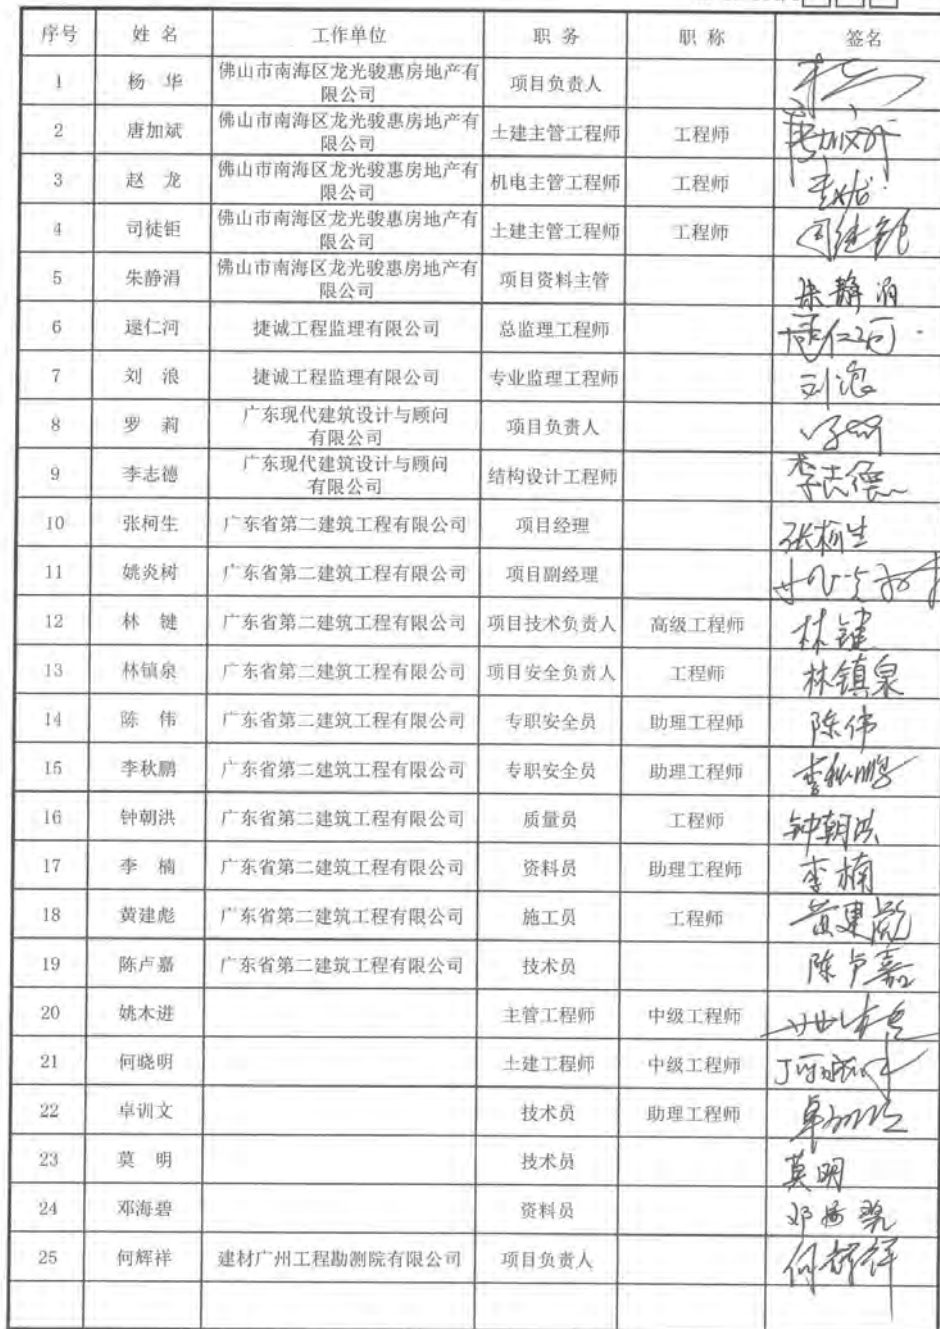 序号 姓名 工作单位 职务 职称 签名
1 杨华 佛山市南海区龙光骏惠房地产有限公司 项目负责人
2 唐加斌 佛山市南海区龙光骏惠房地产有限公司 土建主管工程师 工程师 唐加斌
3 赵龙 佛山市南海区龙光骏惠房地产有限公司 机电主管工程师 工程师
4 司徒钜 佛山市南海区龙光骏惠房地产有限公司 土建主管工程师 工程师 司徒钜
5 朱静涓 佛山市南海区龙光骏惠房地产有限公司 项目资料主管 朱静涓
6 逯仁河 捷诚工程监理有限公司 总监理工程师
7 刘浪 捷诚工程监理有限公司 专业监理工程师 刘浪
8 罗莉 广东现代建筑设计与顾问有限公司 项目负责人
9 李志德 广东现代建筑设计与顾问有限公司 结构设计工程师 李志德
10 张柯生 广东省第二建筑工程有限公司 项目经理 张柯生
11 姚炎树 广东省第二建筑工程有限公司 项目副经理
12 林键 广东省第二建筑工程有限公司 项目技术负责人 高级工程师 林键
13 林镇泉 广东省第二建筑工程有限公司 项目安全负责人 工程师 林镇泉
14 陈伟 广东省第二建筑工程有限公司 专职安全员 助理工程师 陈伟
15 李秋鹏 广东省第二建筑工程有限公司 专职安全员 助理工程师 李秋鹏
16 钟朝洪 广东省第二建筑工程有限公司 质量员 工程师 钟朝洪
17 李楠 广东省第二建筑工程有限公司 资料员 助理工程师 李楠
18 黄建彪 广东省第二建筑工程有限公司 施工员 工程师 黄建彪
19 陈卢嘉 广东省第二建筑工程有限公司 技术员 陈卢嘉
20 姚木进 主管工程师 中级工程师
21 何晓明 土建工程师 中级工程师
22 卓训文 技术员 助理工程师 卓训文
23 莫明 技术员 莫明
24 邓海碧 资料员 邓海碧
25 何辉祥 建材广州工程勘测院有限公司 项目负责人 何辉祥